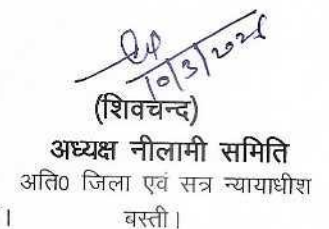 10/3/2021
(शिवचन्द)
अध्यक्ष नीलामी समिति
अति0 जिला एवं सत्र न्यायाधीश
। बस्ती।